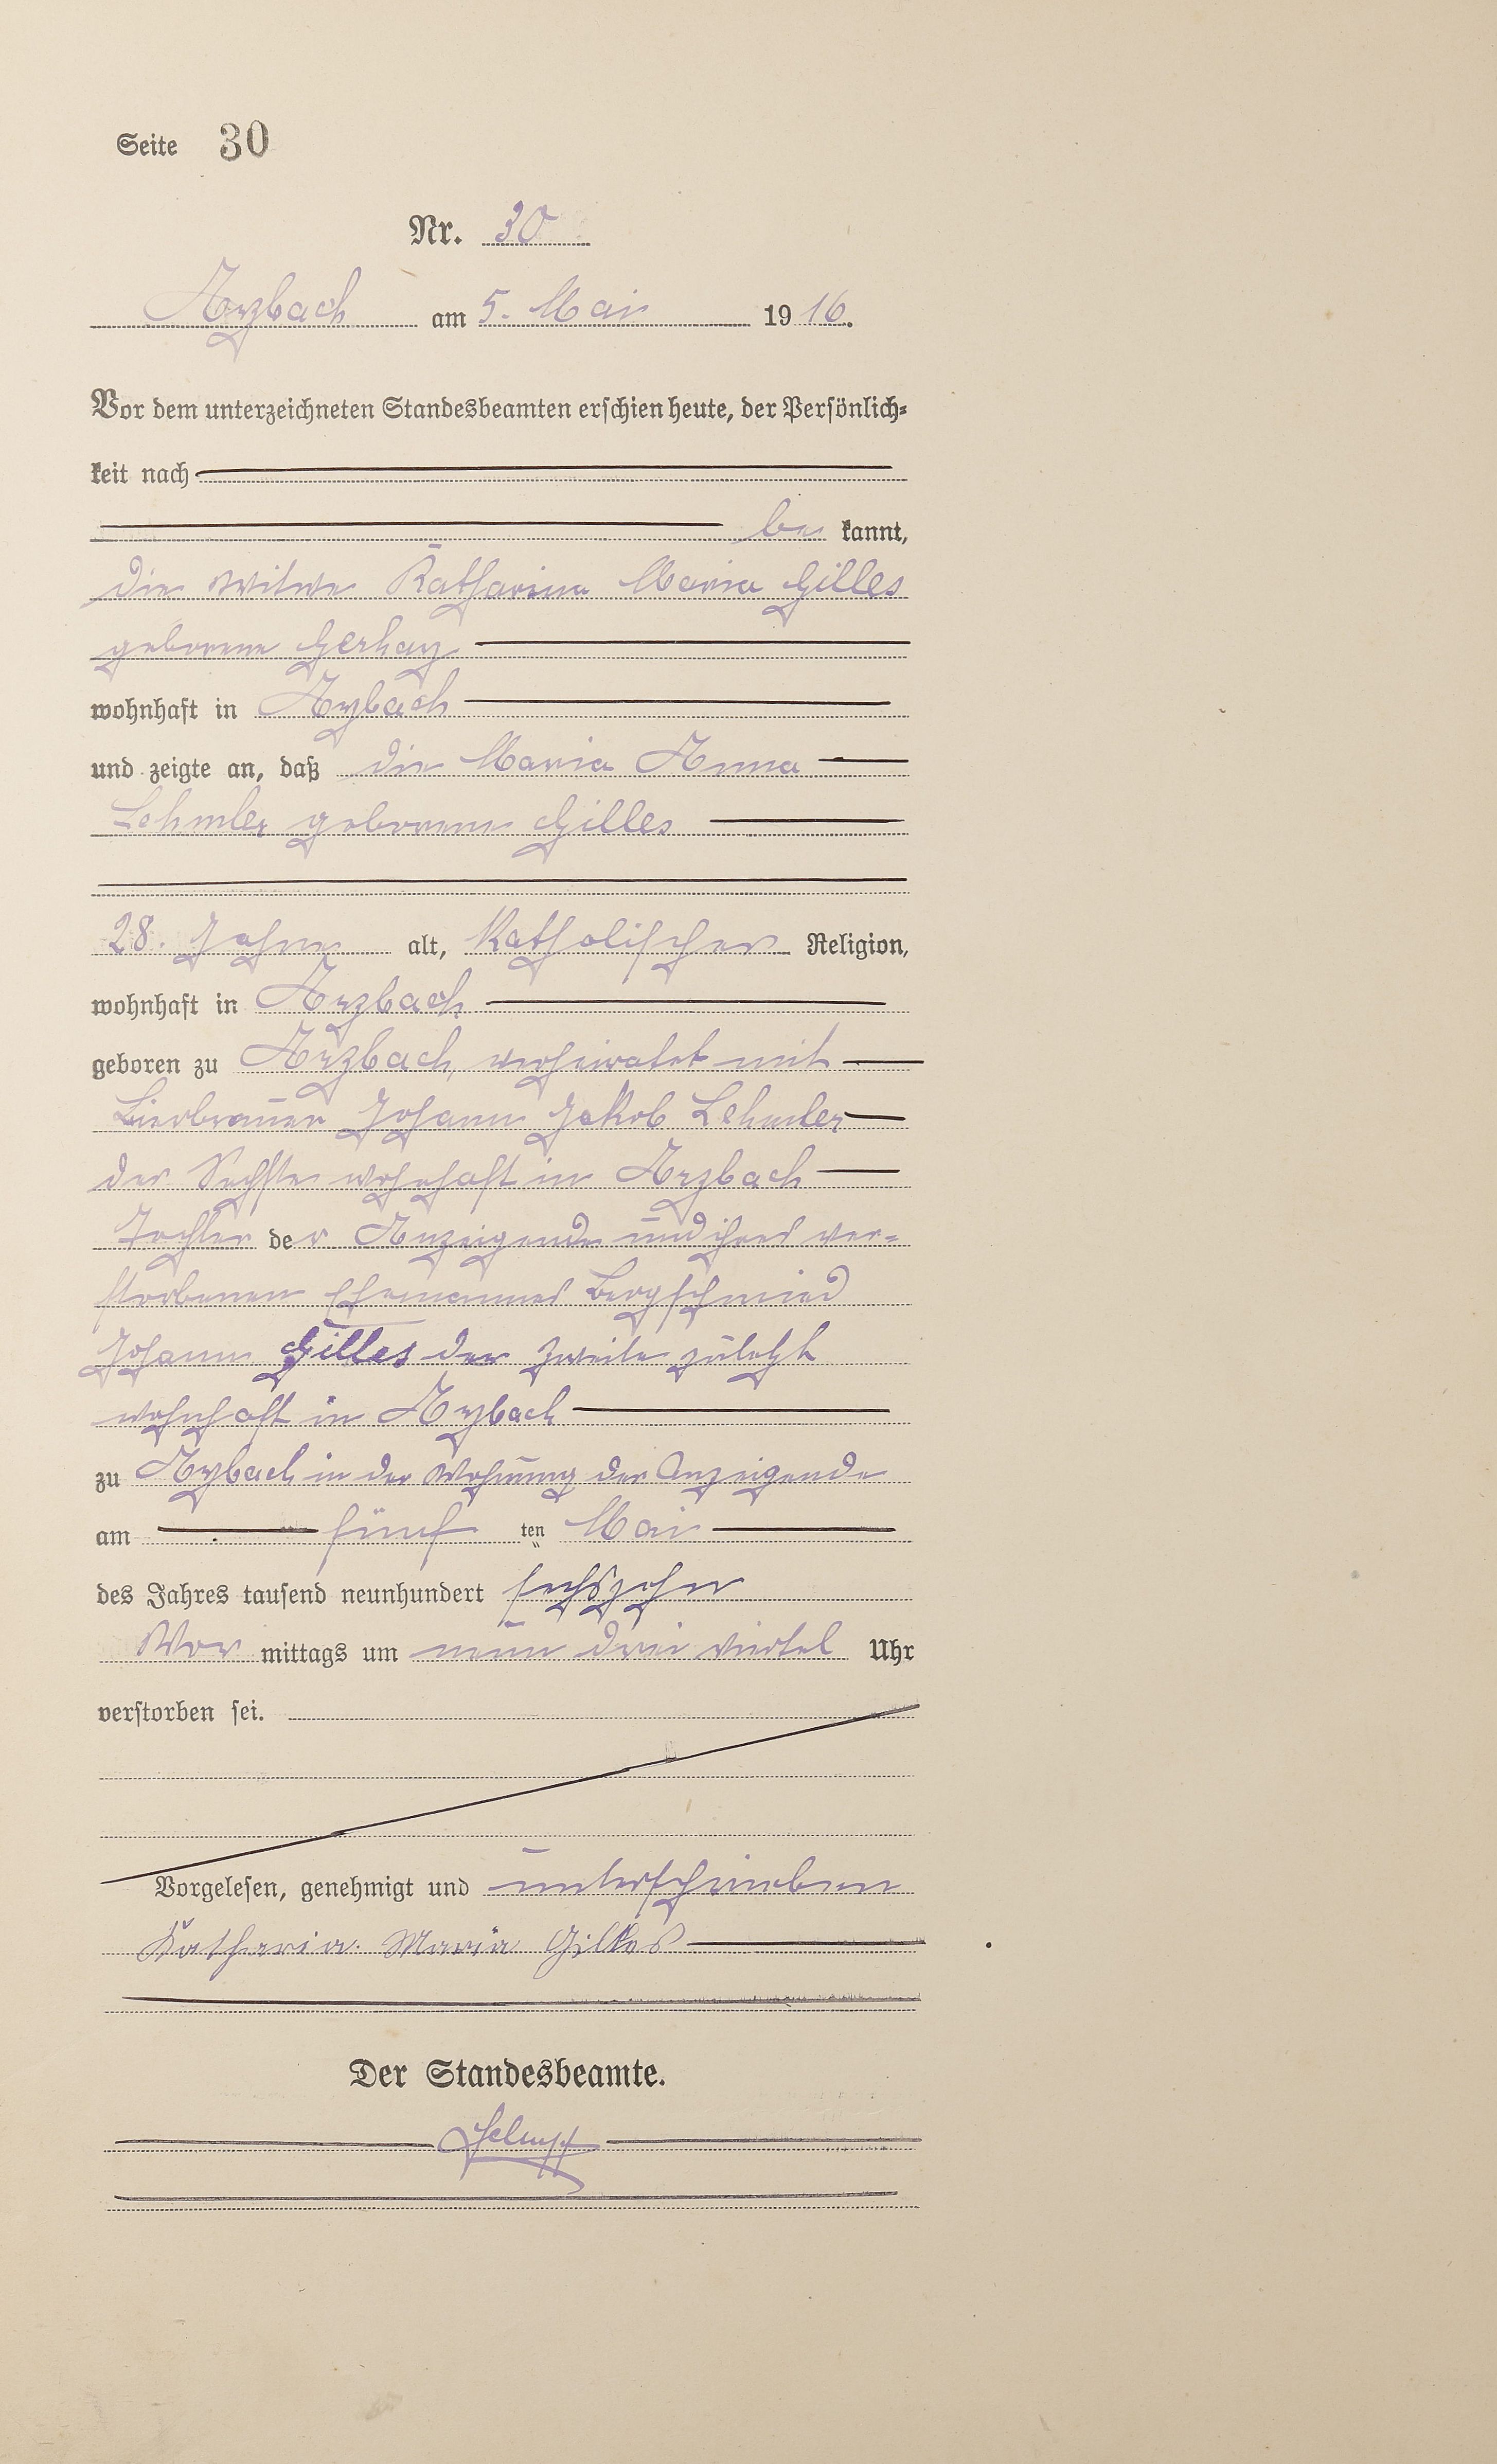 Seite 30
Nr. 30
Arzbach am 5. Mai 1916.
Vor dem unterzeichneten Standesbeamten erschien heute, der Persönlich-
keit nach
be kannt,
die Witwe Katharina Maria Gilles
geborene Gerharz
wohnhaft in Arzbach
und zeigte an, daß die Maria Anna
Lehmler geborene Gilles
28. Jahre alt, Katholischer Religion,
wohnhaft in Arzbach
geboren zu Arzbach, verheiratet mit
Bierbrauer Johann Jakob Lehmler
der Sechste wohnhaft in Arzbach
Tochter der Anzeigende und ihres ver-
storbenen Ehemannes Bergschmied
Johann Gilles der Zweite zuletzt
wohnhaft in Arzbach
zu Arzbach in der Wohnung der Anzeigende
am fünf ten Mai
des Jahres tausend neunhundert sechszehn
Vor mittags um neun drei viertel Uhr
verstorben sei.
Vorgelesen, genehmigt und unterschrieben
Katharia Maria Gilles
Der Standesbeamte.